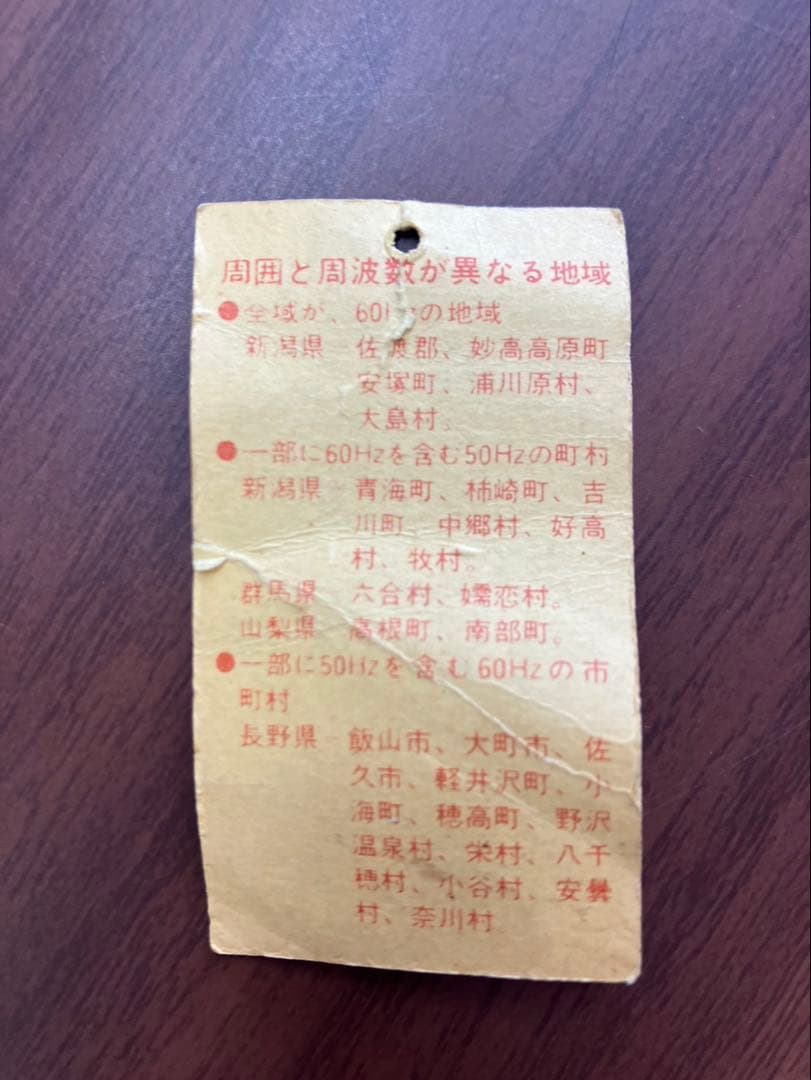 周囲と周波数が異なる地域
●全域が、60Hzの地域
新潟県 佐渡郡、妙高高原町
安塚町、浦川原村、
大島村。
●一部に60Hzを含む50Hzの町村
新潟県 青海町、柿崎町、吉
川町 中郷村、好高
村、牧村。
群馬県 六合村、嬬恋村。
山梨県 高根町、南部町。
●一部に50Hzを含む60Hzの市
町村
長野県 飯山市、大町市、佐
久市、軽井沢町、小
海町、穂高町、野沢
温泉村、栄村、八千
穂村、小谷村、安曇
村、奈川村